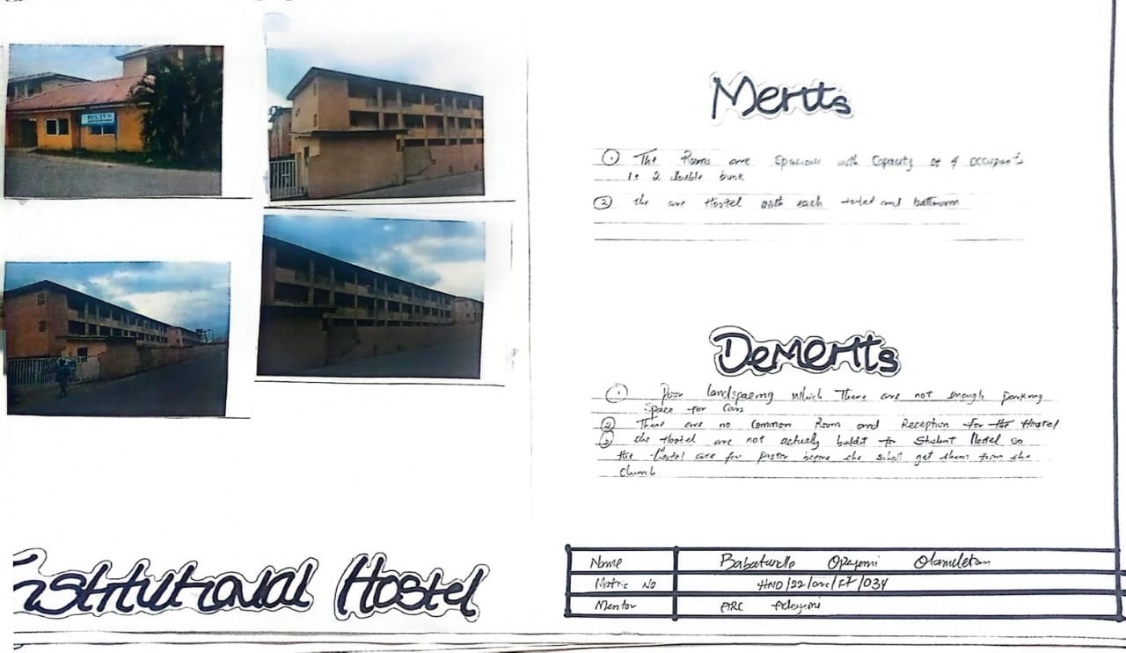 Merits
① The Rooms are Spacious with Capacity of 4 occupants
1: 2 double bunk
② the are Hostel with each toilet and bathroom
Demerits
① Poor landspacing which There are not enough parking
space for Cars
② There are no Common Room and Reception for the Hostel
③ the Hostel are not actually for Student Hostel so
the Hostel are for pastor before the get them from the
Church
Institutional Hostel
Name Babatunde Opeyemi
Matric No HND/22/arc/FT/034
Mentor ARC Adeyemi